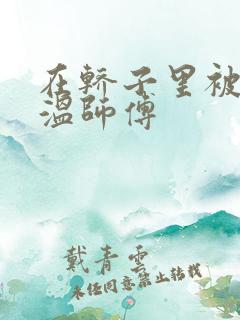 在轿子里被
温师傅
戴青云
未经同意禁止转载